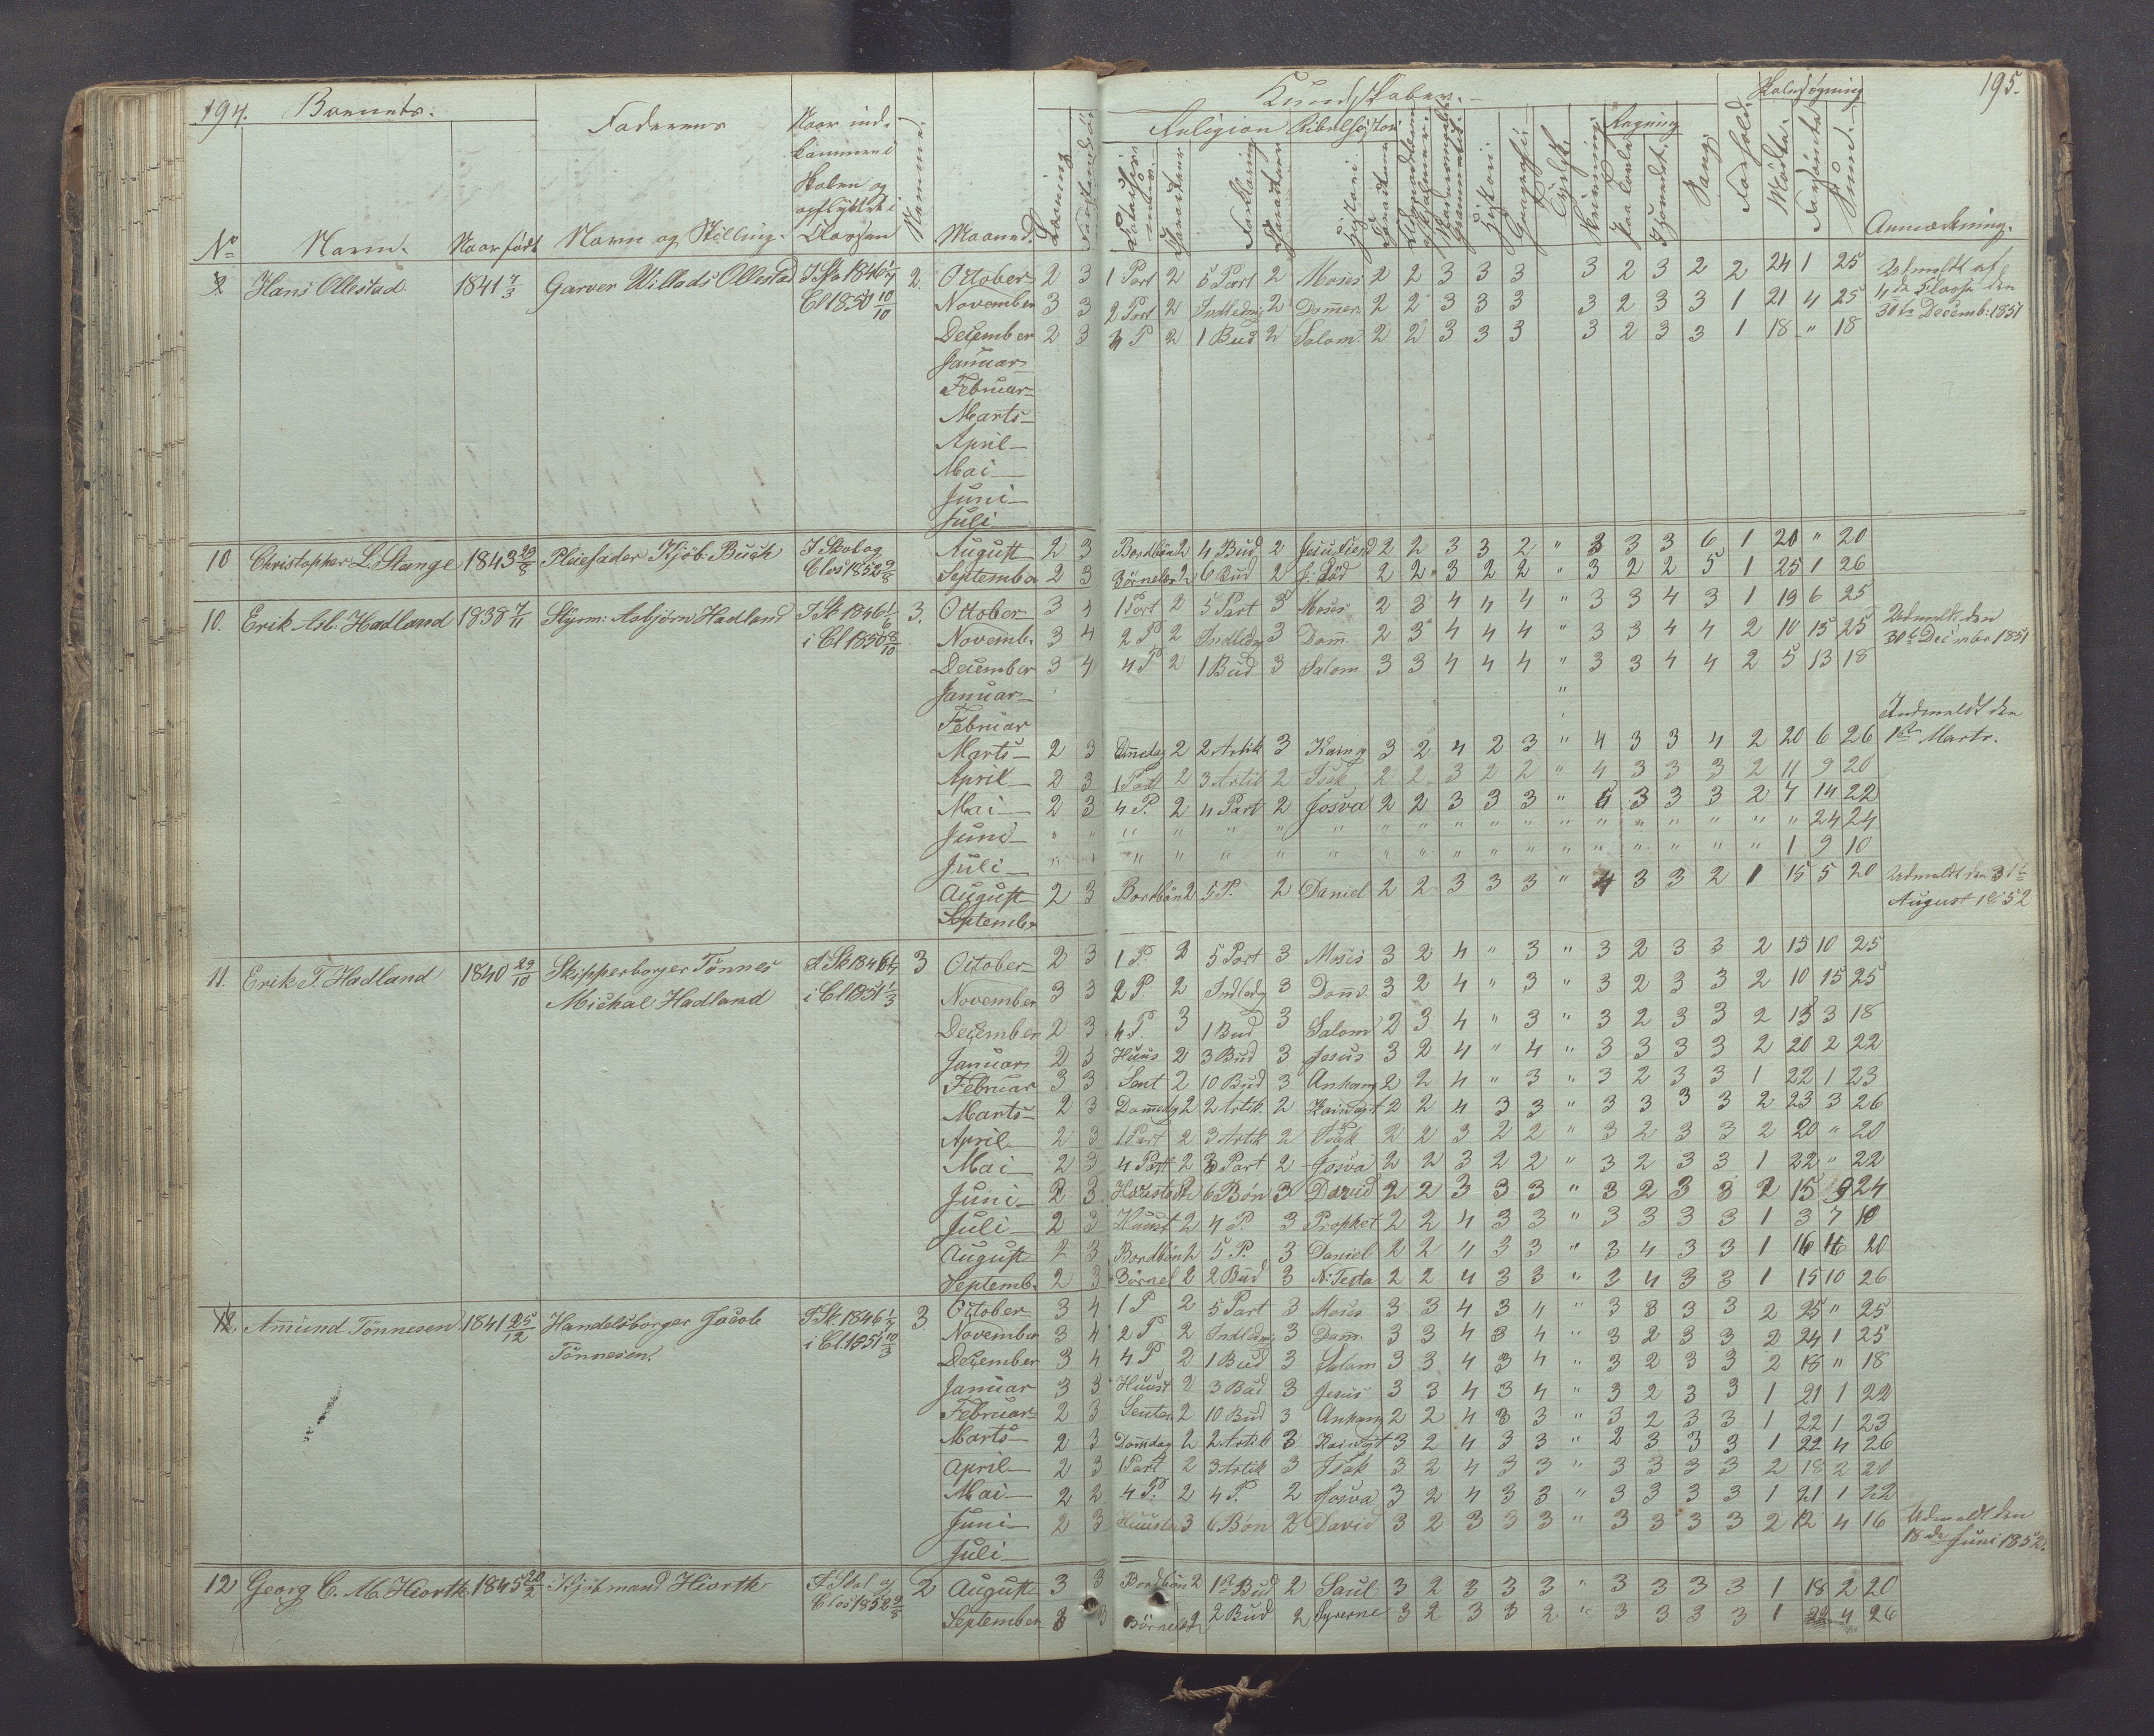 194.
Barnets.
Faderens
Naar ind-
kommen i
Skolen og
opflyttet i
Classen
No
Navn.
Naar født
Navn og Stilling.
Maaned.
Læsning
Kundskaber.
Religion
Bibelhistorie
Historie
Geographie
Tydsk
Skrivning
Regning
Paa Tavle
Sang
Forhold
Skolesøgning
Mødte
Forsømte
Sum
Anmærkning.
195.
9 Hans Ollestad 1841 7/3 Garver Willads Ollestad I Sko 1846 1/7 2. October 2 3 1 Part 2 5 Part 2 Moses 2 2 3 3 3 3 2 3 2 2 24 1 25 Udmeldt af
Cl 1851 10/10 November 3 3 2 Part 2 Indledning 2 Dommer. 2 2 3 3 3 3 2 3 3 1 21 4 25 4de Classe den
December 2 3 4 P 2 1 Bud 2 Salom. 2 2 3 3 3 3 2 3 3 1 18 " 18 30te Decemb: 1851
Januar
Februar
Marts
April
Mai
Juni
Juli
10 Christopher L. Stange 1843 29/8 Pleiefader Kjøb: Busch I Skol og August 2 3 Bordbøn 2 4 Bud 2 2 2 3 3 2 " 3 3 3 6 1 20 " 20
Clas 1852 2/8 September 2 3 Børnelær 2 6 Bud 2 J: Død 2 2 3 2 2 " 3 2 2 5 1 25 1 26
10. Erik Asb. Hadland 1838 7/11 Styrm: Asbjørn Hadland I Sk 1846 1/6 3. October 3 4 1 Part 2 5 Part 3 Moses 2 3 4 4 4 " 3 3 4 3 1 19 6 25 Udmeldt den
i Cl 1850 8/10 Novemb. 3 4 2 P 2 Indledn 3 Dom. 2 3 4 4 4 " 3 3 4 4 2 10 15 25 30te December 1851
December 3 4 4 P 2 1 Bud 3 Salom 3 3 4 4 4 " 3 3 4 4 2 5 13 18
Januar "
Februar Indmeldt den
Marts 2 3 Dommedag 2 2 Artik 3 Kain 3 2 4 2 3 " 4 3 3 4 2 20 6 26 1ste Marts.
April 2 3 1 Part 2 3 Artik 2 Isak 2 2 3 2 2 " 4 3 3 3 2 11 9 20
Mai 2 3 4 P. 2 4 Part 2 Josva 2 2 3 3 3 " 5 3 3 3 2 7 14 22
Juni " " " " " " " " " " " " " " " " " " " 24 24
Juli " " " " " " " " " " " " " " " " " " 1 9 10
August 2 3 Bordbøn 2 5 P. 2 Daniel 2 2 3 3 3 " 4 3 3 2 1 15 5 20 Udmeldt den 31te
September August 1852
11. Erik T. Hadland 1840 29/10 Skipperborger Tönnes I Sk 1846 1/7 3 October 2 3 1 P. 2 5 Part 3 Moses 3 2 4 " 3 " 3 2 3 3 2 15 10 25
Michal Hadland i Cl 1851 1/3 November 3 3 2 P 2 Indledn 3 Dom. 3 2 4 " 3 " 3 2 3 3 2 10 15 25
December 2 3 4 P. 3 1 Bud 3 Salom 2 3 4 " 3 " 3 2 3 3 2 13 3 18
Januar 2 3 Huus 2 3 Bud 3 Jesus 3 2 4 " 4 " 3 3 3 3 2 20 2 22
Februar 3 3 Sent 2 10 Bud 3 Anhang 2 2 4 " 3 " 3 2 3 3 1 22 1 23
Marts 2 3 Dommedg 2 2 Artik. 2 Kain 2 2 4 3 3 " 3 3 3 3 2 23 3 26
April 2 3 1 Part 2 3 Artik 2 Isak 2 2 3 2 2 " 3 2 3 3 2 20 " 20
Mai 2 3 4 Part 2 3 Part 2 Josva 2 2 3 2 2 " 3 2 3 3 1 22 " 22
Juni 2 3 Huustavl 2 6 Bøn 3 David 2 2 3 3 3 " 3 2 3 3 2 15 9 24
Juli 2 3 Huust 2 4 P. 3 Prophet 2 2 4 3 3 " 3 3 3 3 1 3 7 10
August 2 3 Bordbøn 2 5 P. 3 Daniel 2 2 4 3 3 " 3 4 3 3 1 16 4 20
Septemb. 2 3 Børnel 2 2 Bud 3 N: Testa 2 2 4 3 3 " 2 4 3 3 1 15 10 26
12. Amund Tönnesen 1841 25/12 Handelsborger Jacob I Sk. 1846 1/7 3. October 3 4 1 P 2 5 Part 3 Moses 3 3 4 3 4 " 3 3 3 3 2 25 " 25
Tönnesen. i Cl. 1851 10/3 November 3 4 2 P 2 Indledn 3 Dom. 3 3 4 3 4 " 3 2 3 3 2 24 1 25
December 3 4 4 P 2 1 Bud 3 Salom 3 3 4 3 4 " 3 2 3 3 2 18 " 18
Januar 3 3 Huust 2 3 Bud 3 Jesus 3 3 4 3 4 " 3 2 3 3 1 21 1 22
Februar 2 3 Senten 2 10 Bud 3 Anhang 2 2 4 3 3 " 3 2 3 3 1 22 1 23
Marts 2 3 Domdag 2 2 Artik 3 Kain 3 2 4 3 3 " 2 3 3 3 1 22 4 26
April 2 3 1 Part 2 3 Artik 3 Isak 3 2 4 3 3 " 3 3 3 3 2 18 2 20
Mai 2 2 4 P. 2 4 P. 2 Josva 3 2 4 3 3 " 3 3 3 3 1 21 1 22
Juni 2 3 Huusta 3 6 Bøn 2 David 3 2 3 3 3 " 3 3 3 3 2 12 4 16 Udmeldt den
Juli 18de Juni 1852.
12 Georg C. M. Hiorth 1845 20/2 Kjøbmand Hiorth I Skol og 2 August 3 3 Bordbøn 2 1ste Bud 2 Saul 3 2 3 3 3 " 3 3 3 3 1 18 2 20
Clas 1852 2/8 September 3 3 Børnelr 2 2 Bud 2 Syrerne 3 2 3 3 2 " 3 3 3 3 1 22 4 26